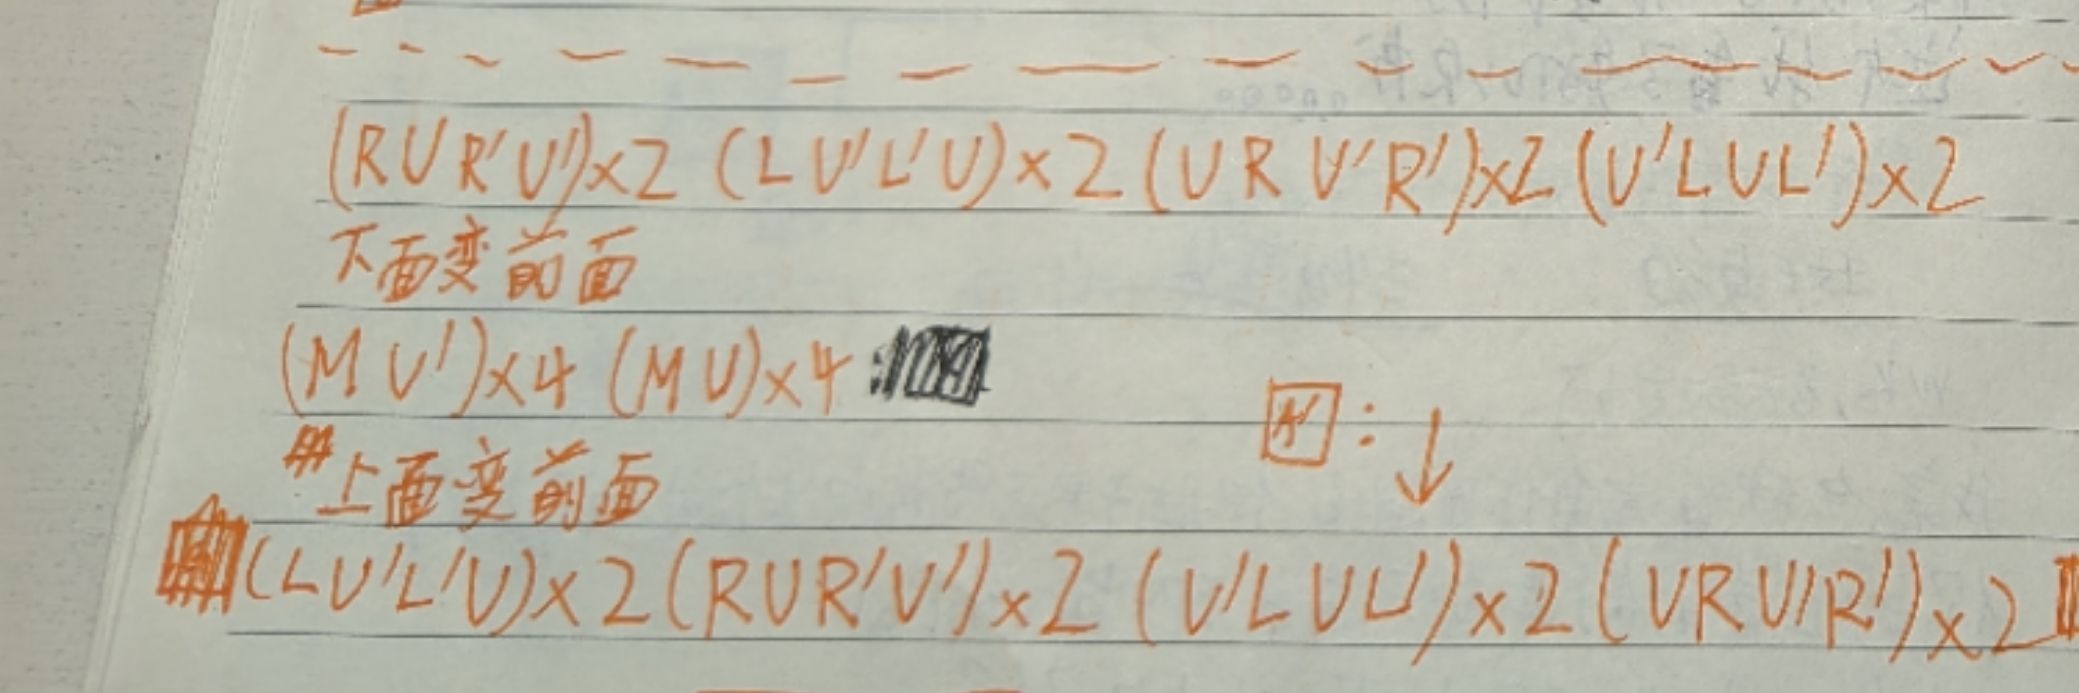 (RUR'U')×2 (LU'L'U)×2 (URU'R')×2 (U'LUL')×2
下面变前面
(MU')×4 (MU)×4
上面变前面
(LU'L'U)×2 (RUR'U')×2 (U'LUL')×2 (URU'R')×2